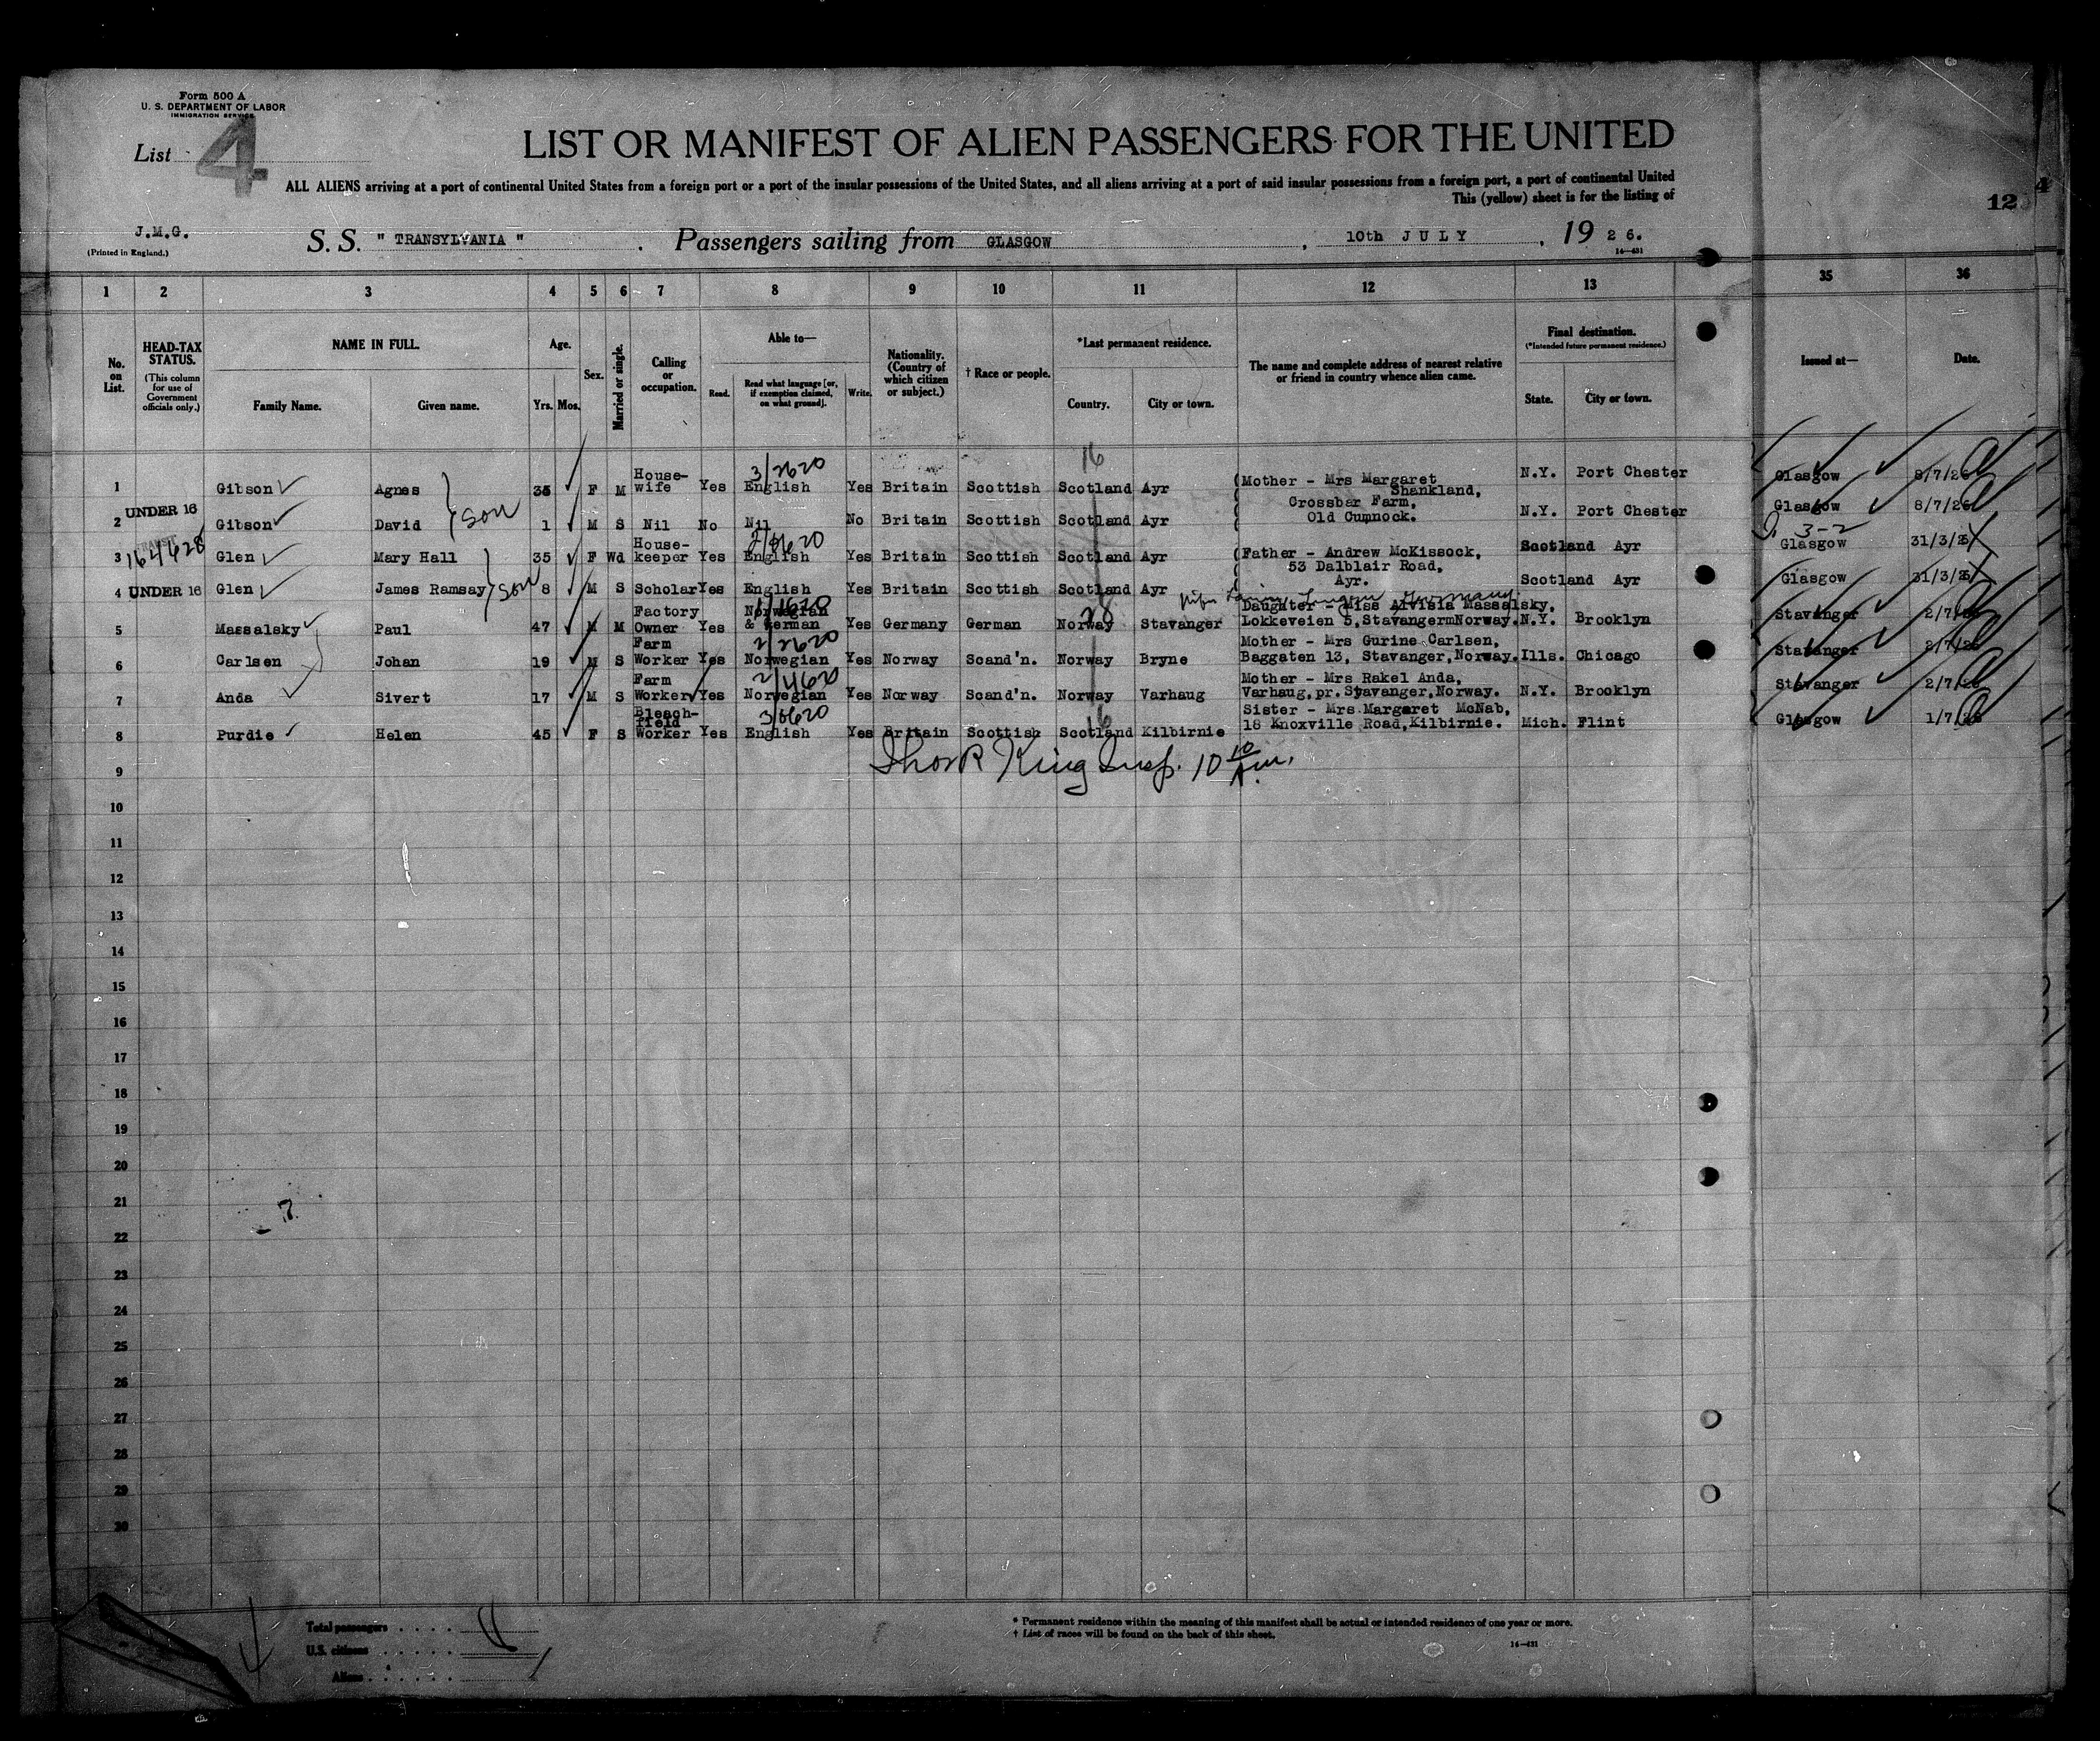 Form 500 A
U. S. DEPARTMENT OF LABOR
IMMIGRATION SERVICE
List 4
LIST OR MANIFEST OF ALIEN PASSENGERS FOR THE UNITED
ALL ALIENS arriving at a port of continental United States from a foreign port or a port of the insular possessions of the United States, and all aliens arriving at a port of said insular possessions from a foreign port, a port of continental United
This (yellow) sheet is for the listing of
12
4
J.M.G.
(Printed in England.)
S. S. " TRANSYLVANIA " . Passengers sailing from GLASGOW , 10th JULY , 19 26.
16—431
1 2 3 4 5 6 7 8 9 10 11 12 13 35 36
No. on List.
HEAD-TAX STATUS.
(This column for use of Government officials only.)
NAME IN FULL.
Family Name. Given name.
Age.
Yrs. Mos.
Sex.
Married or single.
Calling or occupation.
Able to—
Read. Read what language [or, if exemption claimed, on what ground]. Write.
Nationality. (Country of which citizen or subject.)
† Race or people.
*Last permanent residence.
Country. City or town.
The name and complete address of nearest relative or friend in country whence alien came.
Final destination.
(*Intended future permanent residence.)
State. City or town.
Issued at—
Date.
16
3/2620
1 Gibson Agnes 35 F M House-wife Yes English Yes Britain Scottish Scotland Ayr (Mother - Mrs Margaret Shankland, N.Y. Port Chester Glasgow 8/7/26
son
UNDER 16
2 Gibson David 1 M S Nil No Nil No Britain Scottish Scotland Ayr Crossbar Farm, Old Cumnock. N.Y. Port Chester Glasgow 8/7/26
TRANSIT
164428
3-2
3 Glen Mary Hall 35 F Wd House-keeper Yes English Yes Britain Scottish Scotland Ayr (Father - Andrew McKissock, 53 Dalblair Road, Scotland Ayr Glasgow 31/3/26
son
4 UNDER 16 Glen James Ramsay 8 M S Scholar Yes English Yes Britain Scottish Scotland Ayr Ayr. Scotland Ayr Glasgow 31/3/26
Germany
28
5 Massalsky Paul 47 M M Factory Owner Yes Norwegian & German Yes Germany German Norway Stavanger Daughter - Miss Alvisia Massalsky, Lokkeveien 5, StavangermNorway. N.Y. Brooklyn Stavanger 2/7/26
2/2620
6 Carlsen Johan 19 M S Farm Worker Yes Norwegian Yes Norway Scand'n. Norway Bryne Mother - Mrs Gurine Carlsen, Baggaten 13, Stavanger, Norway. Ills. Chicago Stavanger 2/7/26
2/4620
7 Anda Sivert 17 M S Farm Worker Yes Norwegian Yes Norway Scand'n. Norway Varhaug Mother - Mrs Rakel Anda, Varhaug, pr. Stavanger, Norway. N.Y. Brooklyn Stavanger 2/7/26
16
8 Purdie Helen 45 F S Bleach-field Worker Yes English Yes Britain Scottish Scotland Kilbirnie Sister - Mrs. Margaret McNab, 18 Knoxville Road, Kilbirnie. Mich. Flint Glasgow 1/7/26
King Insp. 10
9
10
11
12
13
14
15
16
17
18
19
20
21
22
23
24
25
26
27
28
29
30
Total passengers
U.S. citizens
Aliens
* Permanent residence within the meaning of this manifest shall be actual or intended residence of one year or more.
† List of races will be found on the back of this sheet.
16—431